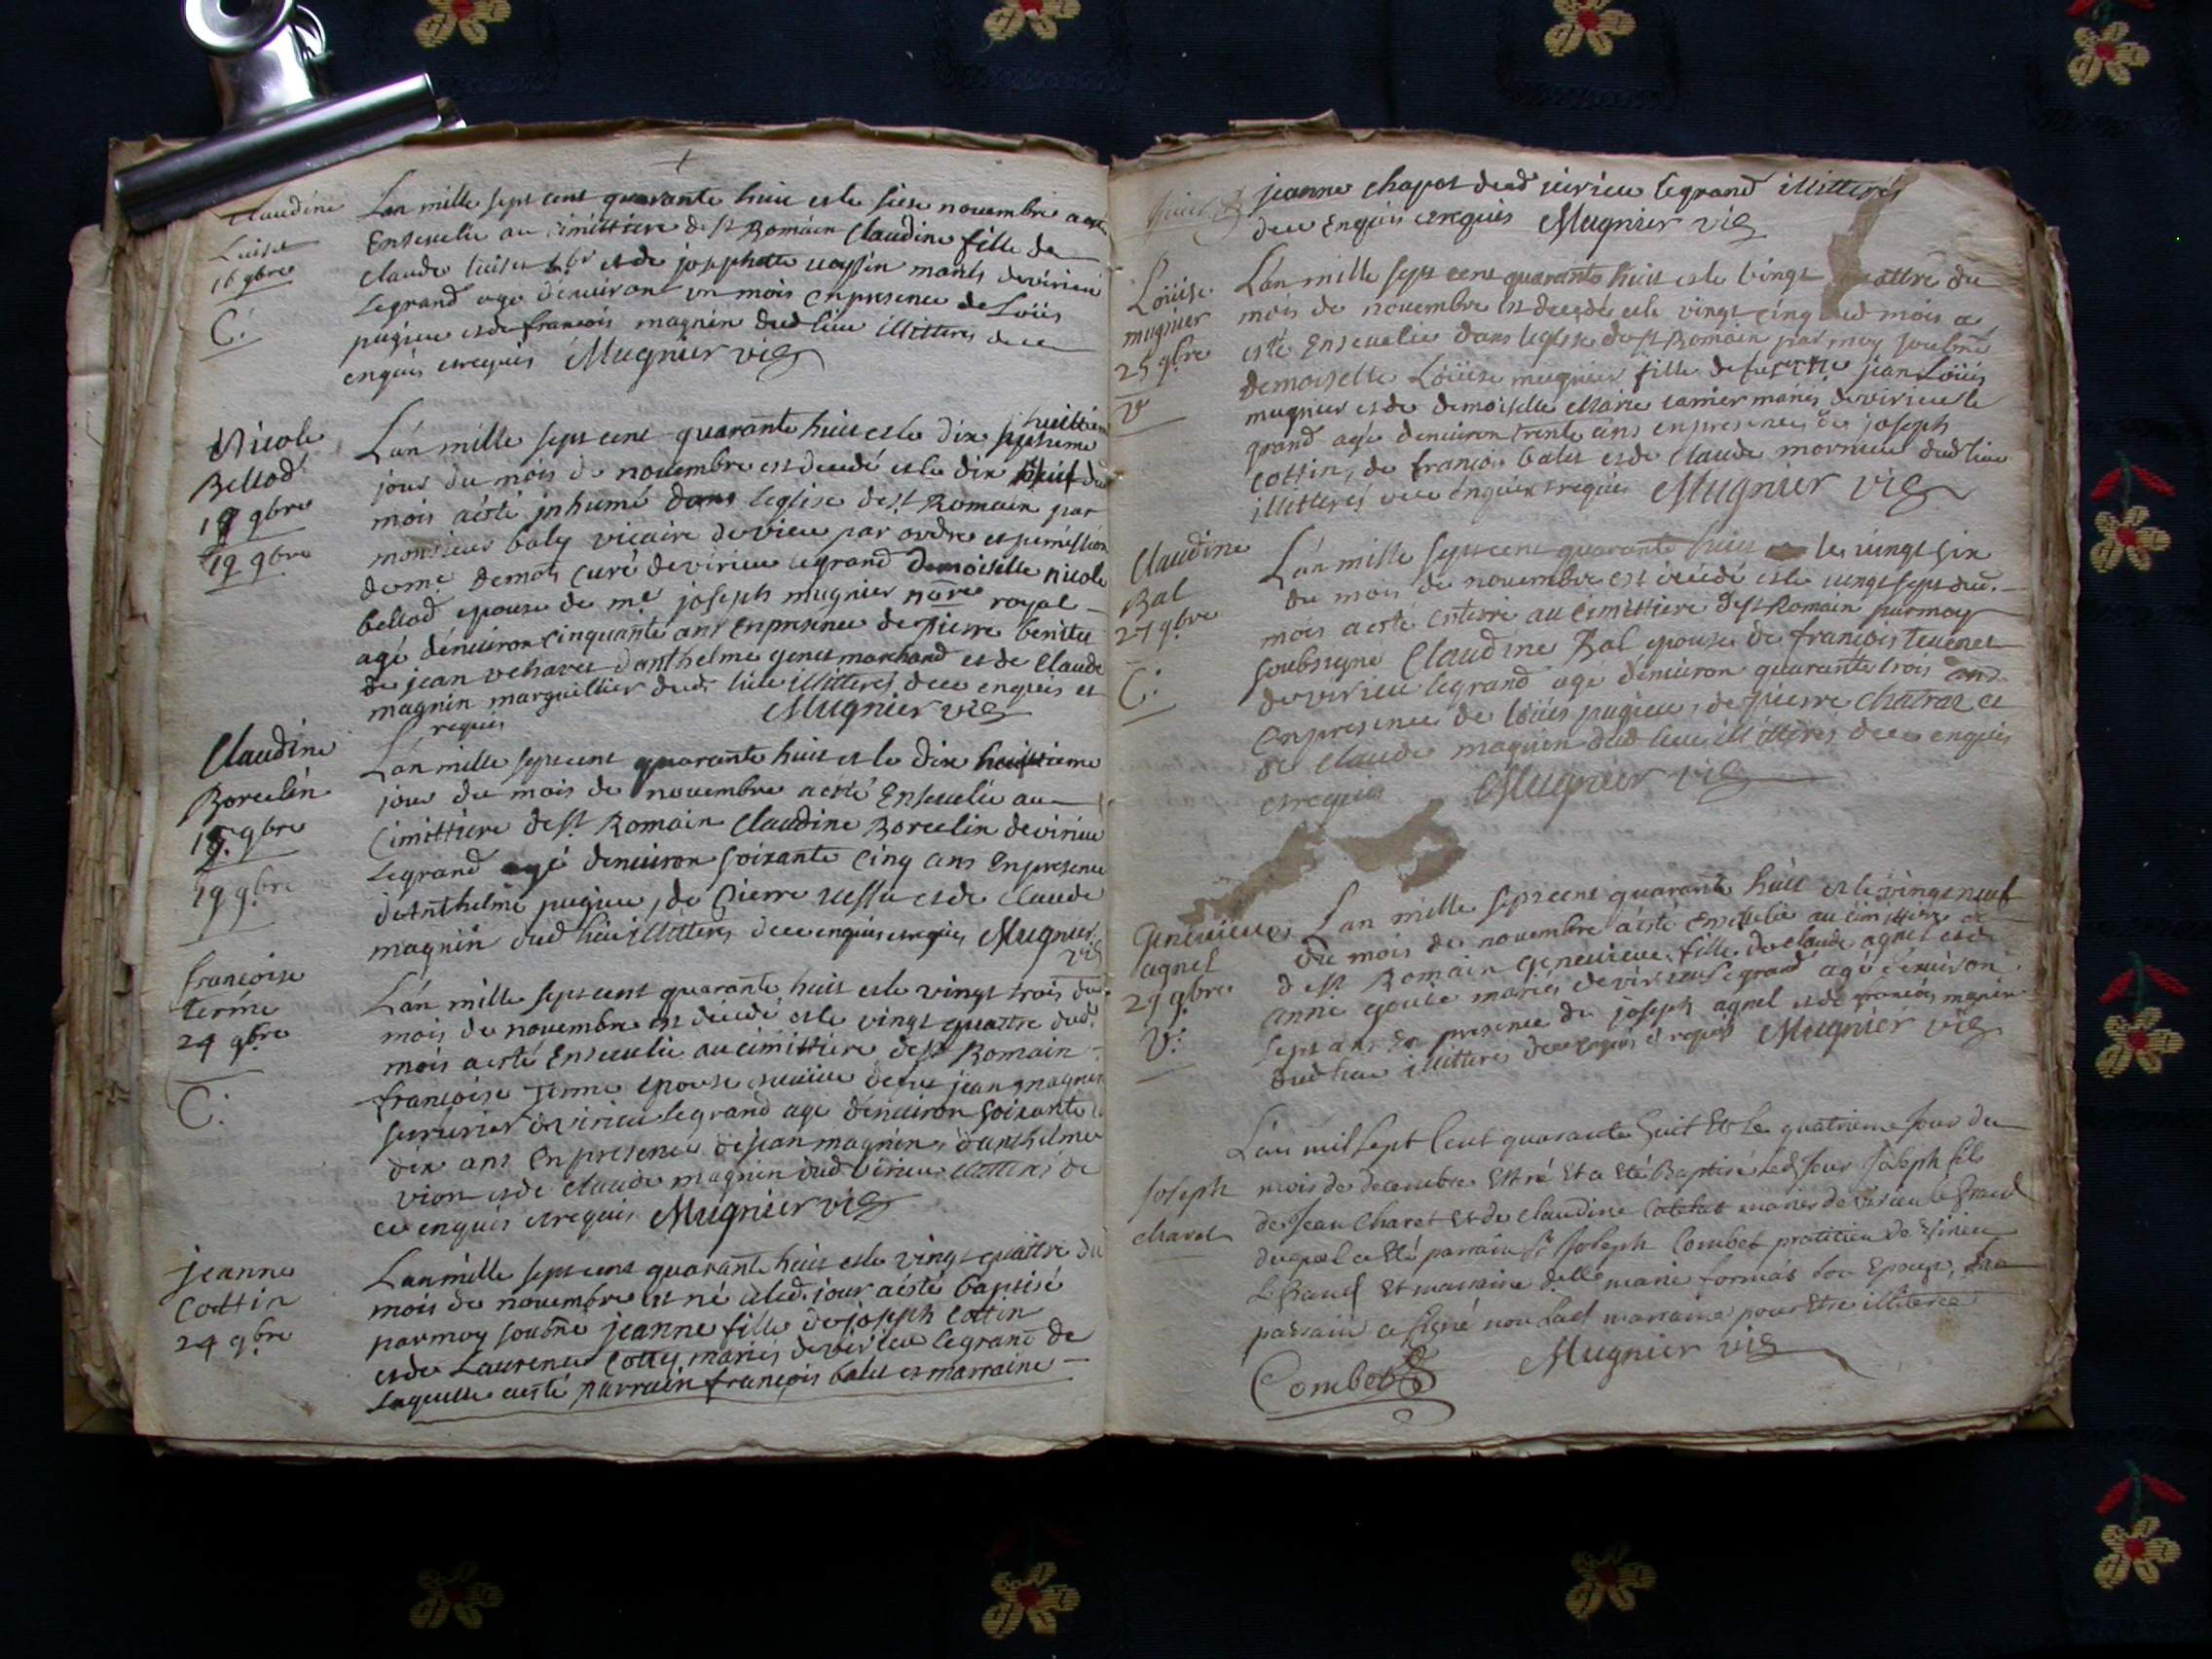 Claudine
Luiset
16 9bre
C.
L'an mille sept cent quarante huit et le seise novembre a esté
Ensevelie au cimittiere de st Romain Claudine fille de
Claude luiset et de josephatte mariés de virieu
legrand age denviron un mois en presence de Loüis
pugieu et de francois magnin dud lieu illitteres de ce
enquis et requis Mugnier vic
Nicole
Bellod
18 9bre
19 9bre
L'an mille sept cent quarante huit et le dix huittieme
jour du mois de novembre est decedé et le dix neuf du
mois a esté inhumé dans leglise de st Romain par
monsieur baly vicaire de vieu par ordre et permission
de me demots curé de virieu legrand Demoiselle nicole
bellod epouse de me joseph mugnier nore royal
agé denviron cinquante ans en presence de pierre
de jean d'anthelme genet marchand et de Claude
magnin marguillier dud lieu illitteres de ce enquis et
requis Mugnier vic
Claudine
Borcelin
18 9bre
19 9bre
L'an mille sept cent quarante huit et le dix
jour du mois de novembre a esté Ensevelie au
Cimittiere de st Romain Claudine Borcelin de virieu
legrand agé denviron soixante cinq ans En presence
d'Anthelme pugieu, de Pierre et de Claude
magnin dud lieu illitteres de ce enquis et requis Mugnier
vic
francoise
terme
24 9bre
C.
L'an mille sept cent quarante huit et le vingt trois du
mois de novembre est decedé et le vingt quattre dud
mois a esté Ensevelie au cimittiere de st Romain
francoise Terme epouse de jean magnin
serrurier de virieu legrand age denviron soixante
dix ans En presence de jean magnin, d'anthelme
vion et de Claude magnin dud virieu illitteres de
ce enquis et requis Mugnier vic
jeanne
Cottin
24 9bre
L'an mille sept cent quarante huit et le vingt quattre du
mois de novembre est né et led. jour a esté baptisé
par moy soubne jeanne fille de joseph Cottin
et de Laurence Cotty mariés de virieu legrand de
laquelle a esté parrain francois balet et marraine
jeanne chapot dud virieu legrand illitterés
de ce Enquis et requis Mugnier vic
Loüise
mugnier
25 9bre
V
L'an mille sept cent quarante huit et le vingt quattre du
mois de novembre est decedé et le vingt cinq dud mois a
esté Ensevelie dans leglise de st Romain par moy soubné
demoiselle Loüise mugnier fille de feu jean Loüis
mugnier et de demoiselle Marie carrier mariés de virieu le
grand agé denviron trente ans en presence de joseph
Cottin, de francois balet et de Claude mornieu dud lieu
illitterés de ce enquis et requis Mugnier vic
Claudine
Bal
27 9bre
C.
L'an mille sept cent quarante huit le vingt six
du mois de novembre est decedé et le vingt sept dud.
mois a esté enterré au cimittiere de st Romain par moy
soubsigne Claudine Bal epouse de francois tevenet
de virieu legrand agé denviron quarante trois ans
En presence de loüis pugieu, de pierre Charras et
de Claude magnin dud lieu illitteres de ce enquis
et requis Mugnier vic
Genevieve
agnel
29 9bre
V.
L'an mille sept cent quarante huit et le vingt neuf
du mois de novembre a esté Ensevelie au cimittiere de
de st Romain Genevieve fille de Claude agnel et de
anne mariés de virieu legrand agé denviron
sept ans En presence de joseph agnel et de francois magnin
dud lieu illitteres de ce enquis et requis Mugnier vic
Joseph
charet
L'an mil sept Cent quarante huit Et Le quatrieme Jour du
mois de decembre Est né Et a Eté Baptisé led Jour Joseph fils
de Jean Charet Et de Claudine mariés de virieu le Grand
duquel a Eté parrain Sr Joseph Combet praticien de virieu
le Grand Et marraine delle marie formas son Epouse,
parrain a signé non lad marraine pour Etre illiterée
Combet Mugnier vic